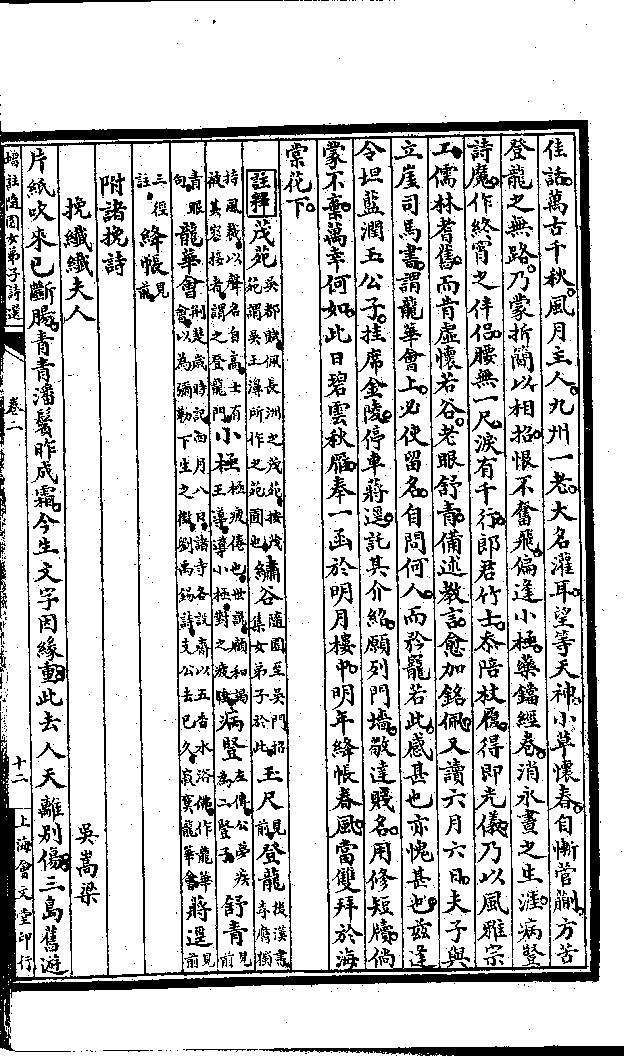 佳話萬古千秋風月主人九州一老大名灌耳望等天神小草懷春自慚菅蒯方苦
登龍之無路乃蒙折簡以相招恨不奮飛偏逢小極藥鐺經卷消永晝之生涯病豎
詩魔作終宵之伴侶腰無一尺淚有千行郎君竹士忝陪杖履得即光儀乃以風雅宗
工儒林耆舊而肯虛懷若谷老眼舒青備述教言愈加銘佩又讀六月六日夫子與
立崖司馬書謂龍華會上必使留名自問何人而矜寵若此感甚也亦愧甚也茲逢
令坦藍潤玉公子挂席金陵停車蔣逕託其介紹願列門墻敬達賤名用修短牘倘
蒙不棄萬幸何如此日碧雲秋雁奉一函於明月樓中明年絳帳春風當雙拜於海
棠花下
註釋 茂苑 吳都賦佩長洲之茂苑按茂苑謂吳王濞所作之苑囿也 繡谷 隨園至吳門招集女弟子於此 玉尺 見前 登龍 後漢書李膺獨
持風裁以聲名自高士有被其容接者謂之登龍門 小極 極疲倦也世說顧和謁王導導小極對之疲睡 病豎 左傳公夢疾為二豎子 舒青 見前
青眼句 龍華會 荆楚歲時記四月八日諸寺各設齋以五香水浴佛作龍華會以為彌勒下生之徵劉禹錫詩支公去已久寂寞龍華會 蔣逕 見前
三徑註 絳帳 見前
附諸挽詩
挽纖纖夫人
吳嵩梁
片紙吹來已斷腸青青潘鬢昨成霜今生文字因緣重此去人天離別傷三島舊遊
增註隨園女弟子詩選
卷二
十二
上海會文堂印行